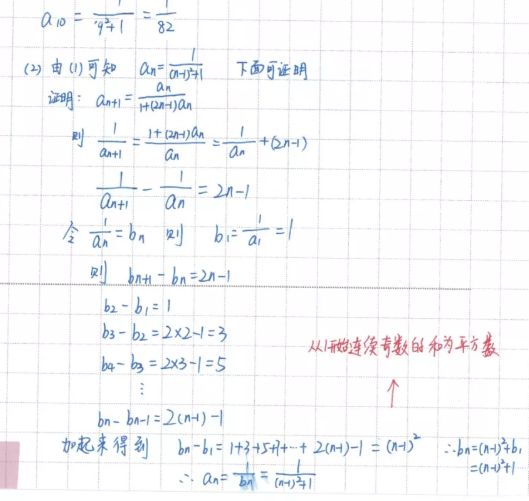 a₁₀ = 1/(9²+1) = 1/82
(2) 由(1)可知 aₙ = 1/((n-1)²+1) 下面可证明
证明: aₙ₊₁ = aₙ/(1+(2n-1)aₙ)
则 1/aₙ₊₁ = (1+(2n-1)aₙ)/aₙ = 1/aₙ + (2n-1)
1/aₙ₊₁ - 1/aₙ = 2n-1
令 1/aₙ = bₙ 则 b₁ = 1/a₁ = 1
则 bₙ₊₁ - bₙ = 2n-1
b₂ - b₁ = 1
b₃ - b₂ = 2×2-1 = 3
从1开始连续奇数的和为平方数
b₄ - b₃ = 2×3-1 = 5
⋮
↑
bₙ - bₙ₋₁ = 2(n-1)-1
加起来得到 bₙ - b₁ = 1+3+5+7+⋯+2(n-1)-1 = (n-1)² ∴bₙ = (n-1)²+b₁
= (n-1)²+1
∴ aₙ = 1/bₙ = 1/((n-1)²+1)